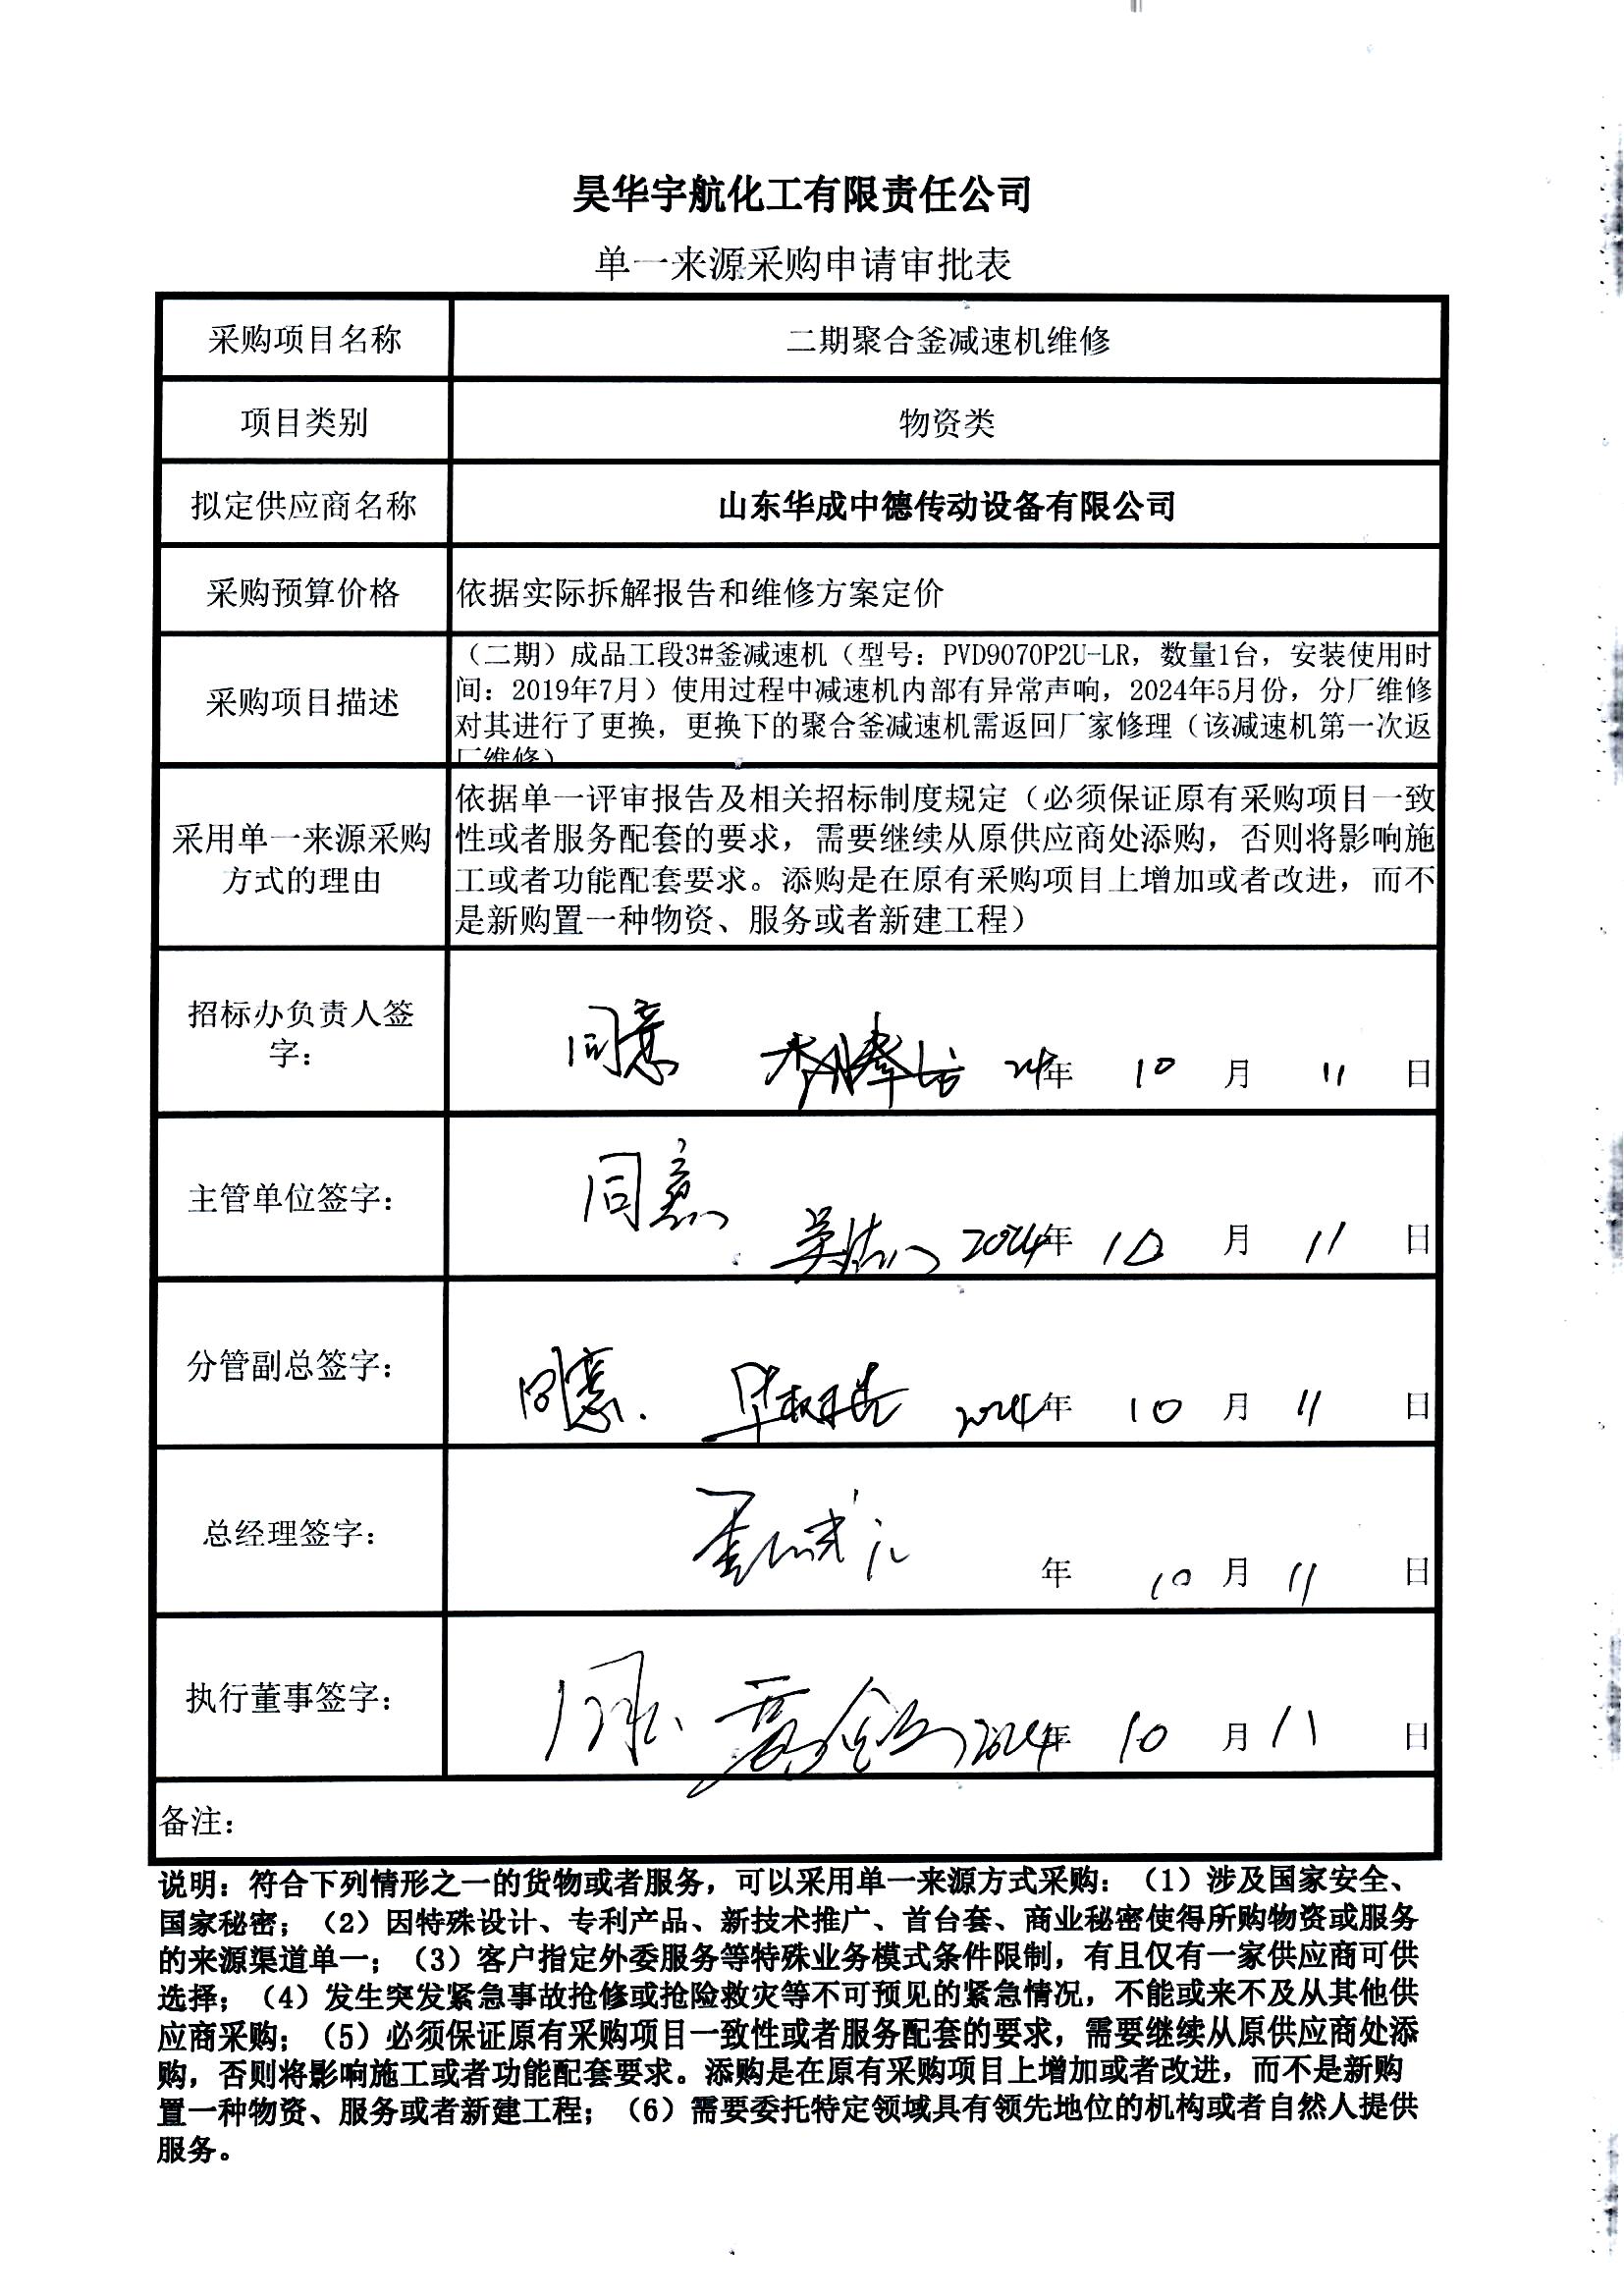 昊华宇航化工有限责任公司
单一来源采购申请审批表
采购项目名称 二期聚合釜减速机维修
项目类别 物资类
拟定供应商名称 山东华成中德传动设备有限公司
采购预算价格 依据实际拆解报告和维修方案定价
采购项目描述
（二期）成品工段3#釜减速机（型号：PVD9070P2U-LR，数量1台，安装使用时
间：2019年7月）使用过程中减速机内部有异常声响，2024年5月份，分厂维修
对其进行了更换，更换下的聚合釜减速机需返回厂家修理（该减速机第一次返
厂维修）
采用单一来源采购
方式的理由
依据单一评审报告及相关招标制度规定（必须保证原有采购项目一致
性或者服务配套的要求，需要继续从原供应商处添购，否则将影响施
工或者功能配套要求。添购是在原有采购项目上增加或者改进，而不
是新购置一种物资、服务或者新建工程）
招标办负责人签
字：
同意 24年 10 月 11 日
主管单位签字：
同意 2024年 10 月 11 日
分管副总签字：
同意. 2024年 10 月 11 日
总经理签字：
年 10 月 11 日
执行董事签字：
2024年 10 月 11 日
备注：
说明：符合下列情形之一的货物或者服务，可以采用单一来源方式采购：（1）涉及国家安全、
国家秘密；（2）因特殊设计、专利产品、新技术推广、首台套、商业秘密使得所购物资或服务
的来源渠道单一；（3）客户指定外委服务等特殊业务模式条件限制，有且仅有一家供应商可供
选择；（4）发生突发紧急事故抢修或抢险救灾等不可预见的紧急情况，不能或来不及从其他供
应商采购；（5）必须保证原有采购项目一致性或者服务配套的要求，需要继续从原供应商处添
购，否则将影响施工或者功能配套要求。添购是在原有采购项目上增加或者改进，而不是新购
置一种物资、服务或者新建工程；（6）需要委托特定领域具有领先地位的机构或者自然人提供
服务。